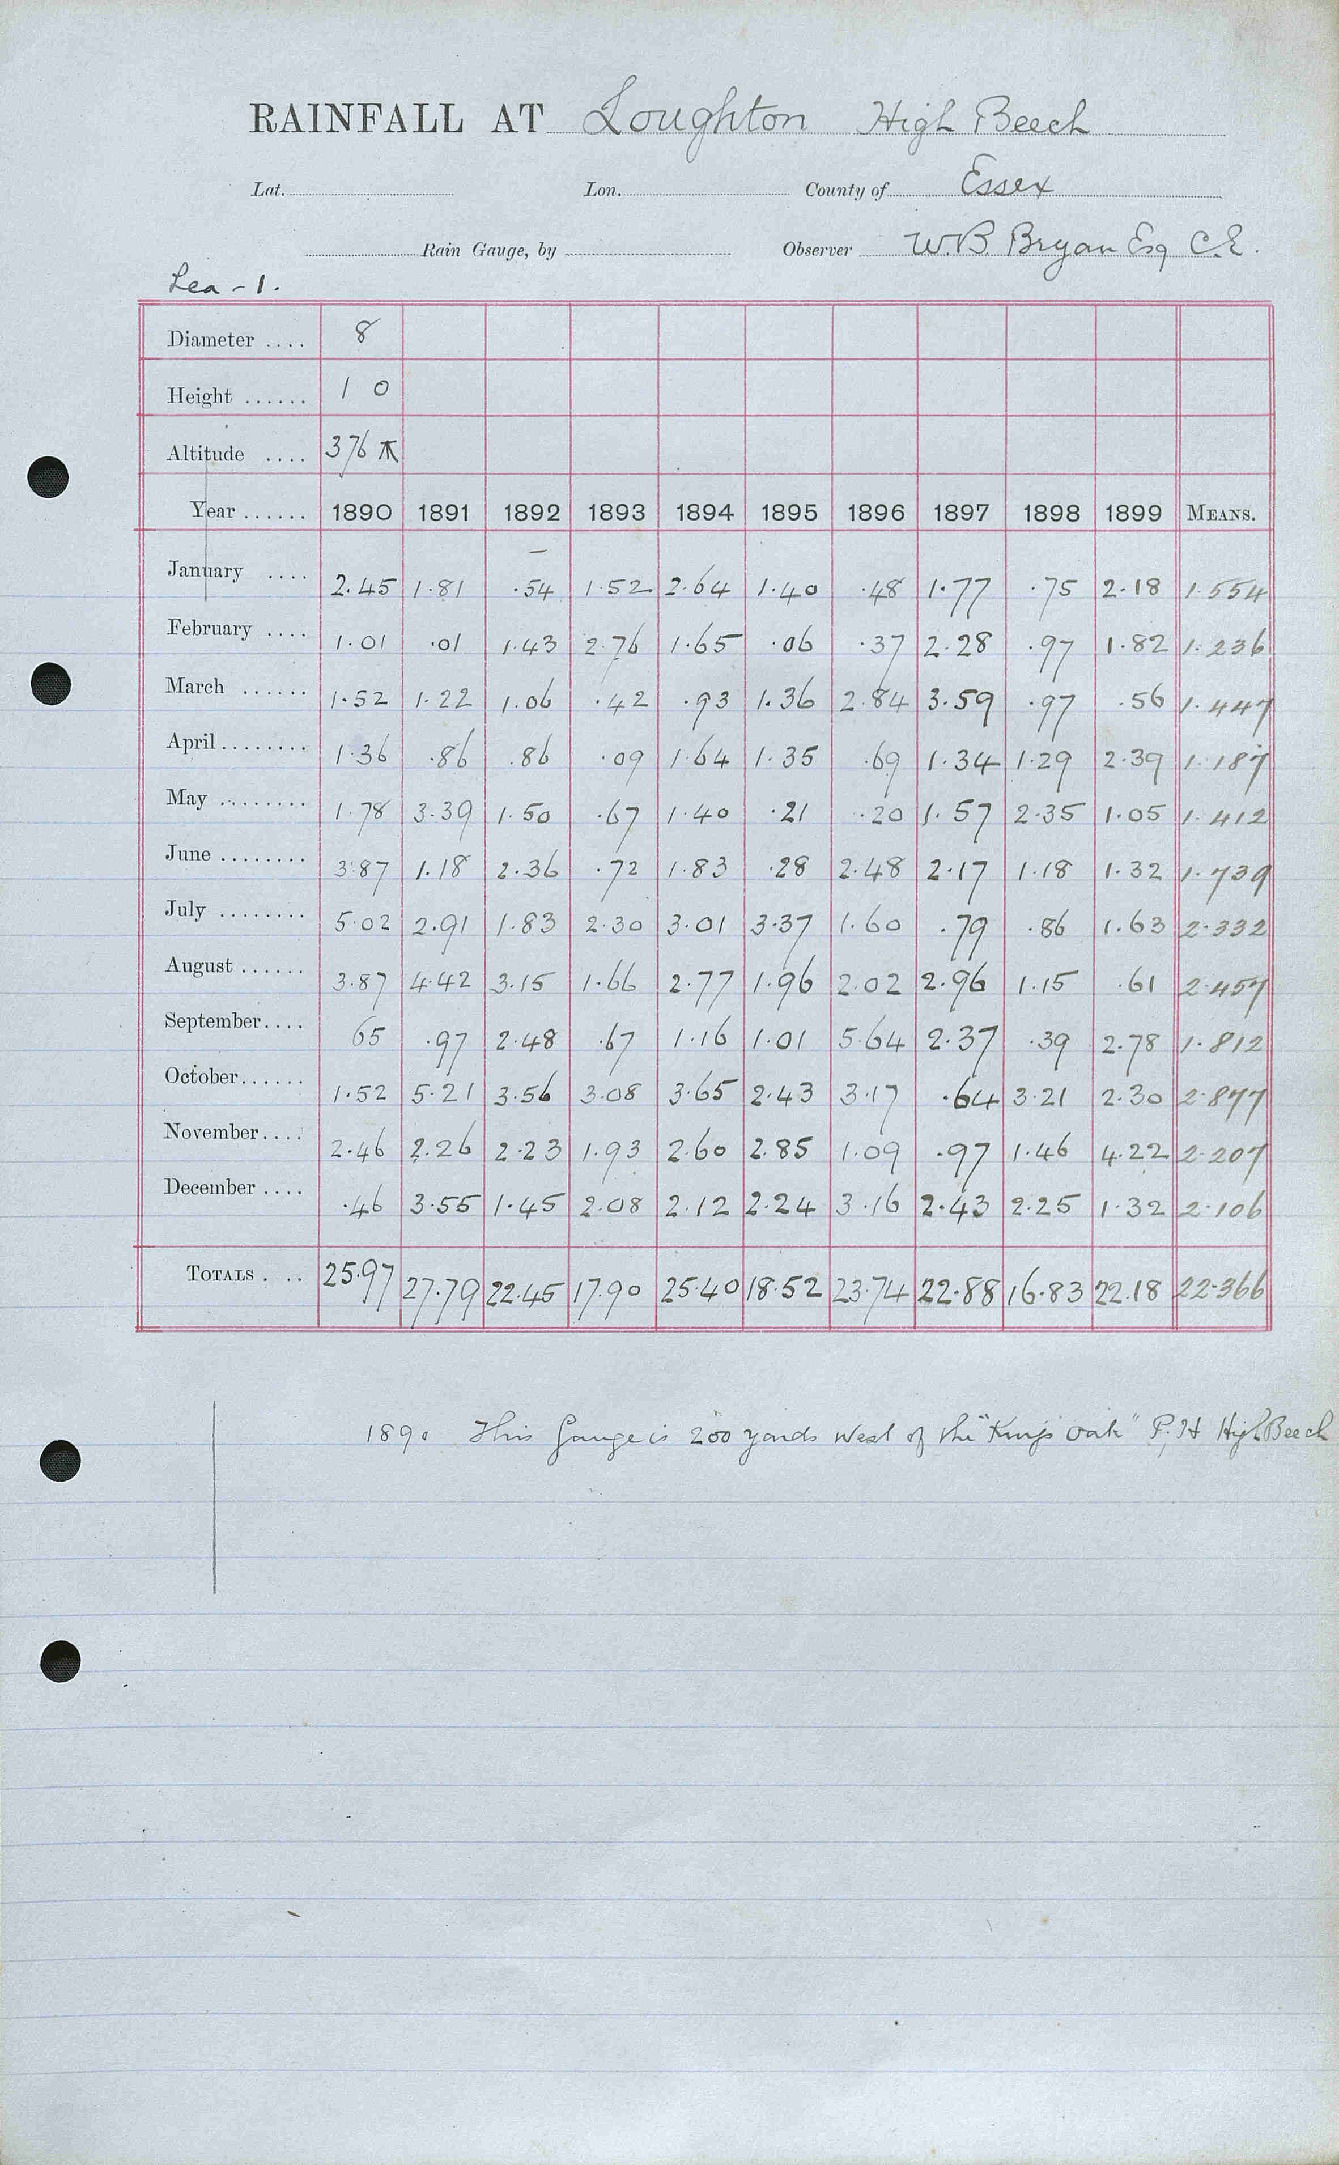 RAINFALL AT Loughton High Beech
Lat. Lon. County of Essex
Rain Gauge, by Observer W.B. Bryan Esq C.E.
Lea - 1.
Diameter .... 8
Height ...... 1 0
Altitude .... 376
Year ...... 1890 1891 1892 1893 1894 1895 1896 1897 1898 1899 MEANS.
January .... 2.45 1.81 .54 1.52 2.64 1.40 .48 1.77 .75 2.18 1.554
February .... 1.01 .01 1.43 2.76 1.65 .06 .37 2.28 .97 1.82 1.236
March ...... 1.52 1.22 1.06 .42 .93 1.36 2.84 3.59 .97 .56 1.447
April ........ 1.36 .86 .86 .09 1.64 1.35 .69 1.34 1.29 2.39 1.187
May ........ 1.78 3.39 1.50 .67 1.40 .21 .20 1.57 2.35 1.05 1.412
June ........ 3.87 1.18 2.36 .72 1.83 .28 2.48 2.17 1.18 1.32 1.739
July ........ 5.02 2.91 1.83 2.30 3.01 3.37 1.60 .79 .86 1.63 2.332
August ...... 3.87 4.42 3.15 1.66 2.77 1.96 2.02 2.96 1.15 .61 2.457
September.... 65 .97 2.48 .67 1.16 1.01 5.64 2.37 .39 2.78 1.812
October...... 1.52 5.21 3.56 3.08 3.65 2.43 3.17 .64 3.21 2.30 2.877
November.... 2.46 2.26 2.23 1.93 2.60 2.85 1.09 .97 1.46 4.22 2.207
December .... .46 3.55 1.45 2.08 2.12 2.24 3.16 2.43 2.25 1.32 2.106
TOTALS . .. 25.97 27.79 22.45 17.90 25.40 18.52 23.74 22.88 16.83 22.18 22.366
1890 This Gauge is 200 yards West of the "King's Oak" P.H High Beech